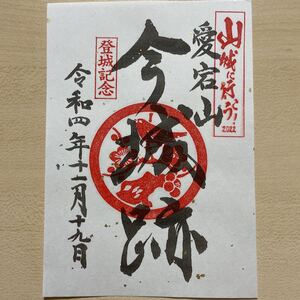 山城に行こう!
2022
愛宕山
今城跡
登城記念
令和四年十一月十九日